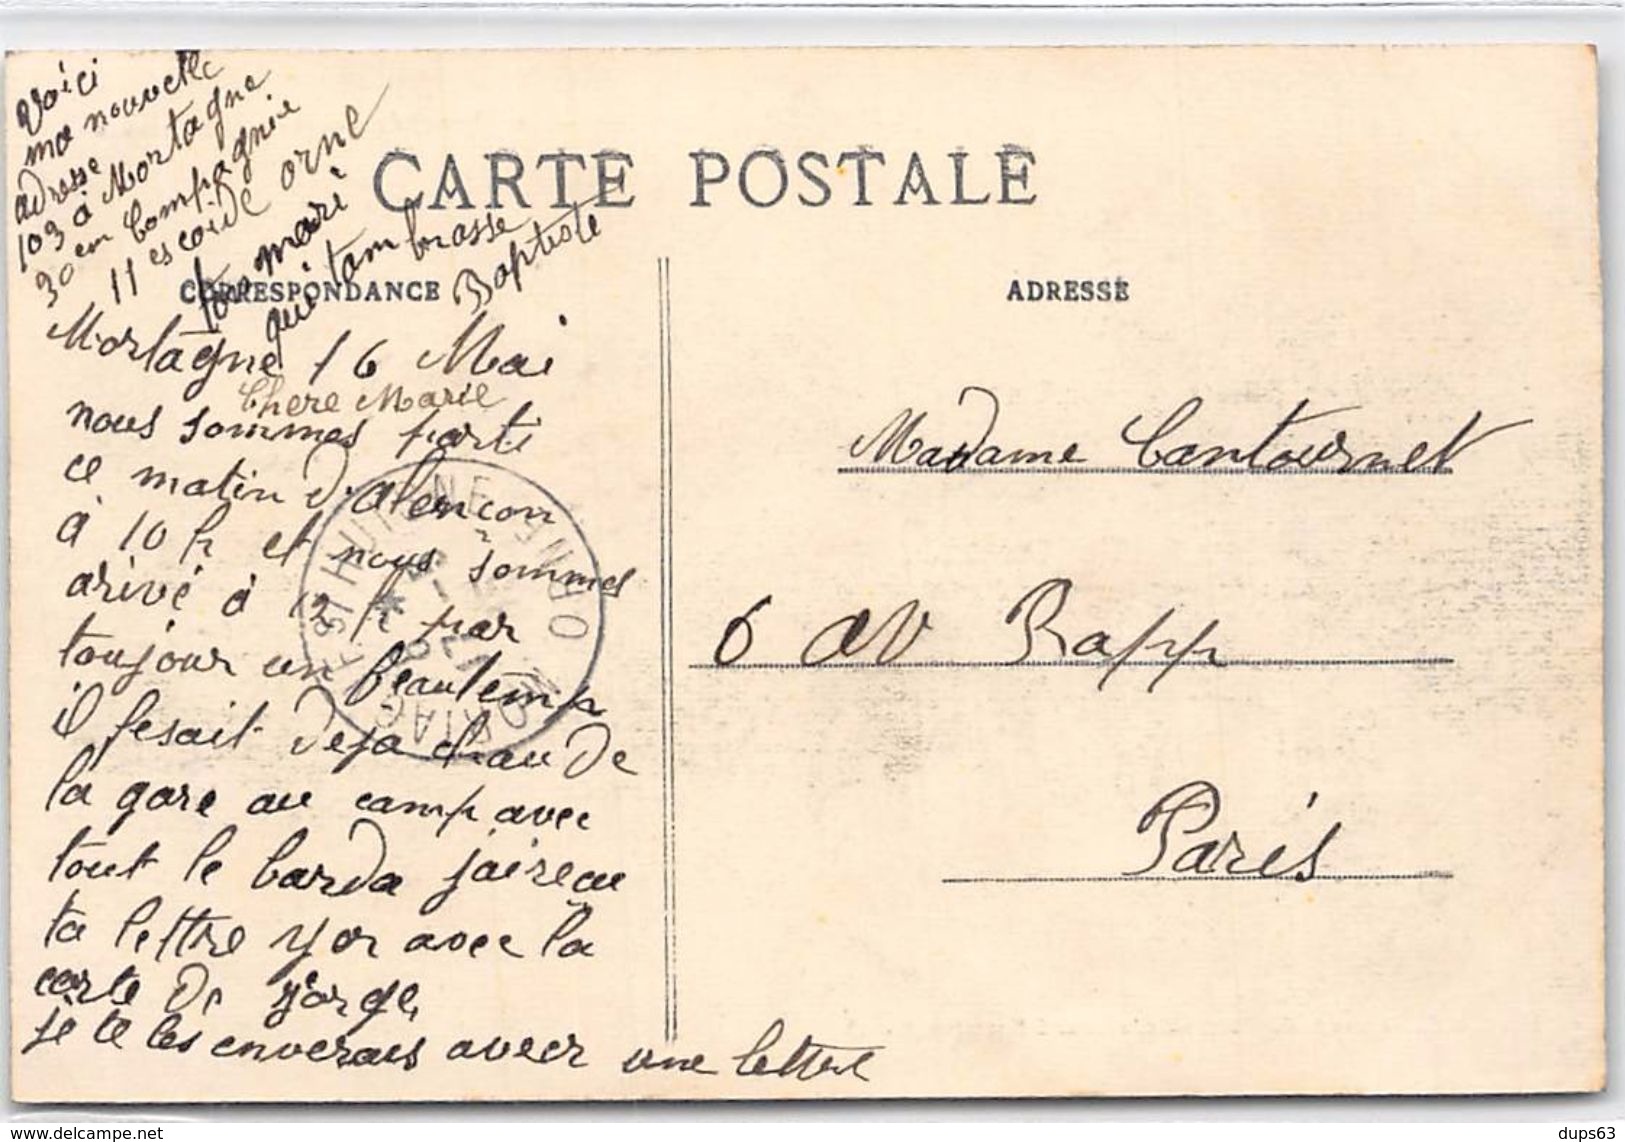 Voici
ma nouvelle
adresse
103 à Mortagne
30 em Compagnie
11 escoide orne
ton mari
qui tambrasse
Baptiste
CARTE POSTALE
CORRESPONDANCE
ADRESSE
Mortagne 16 Mai
Chere Marie
nous sommes parti
ce matin d'alencon
à 10 h et nous sommes
arivé à 12 h par
toujour un beautemp
il fesait deja chau de
la gare au camp avec
tout le barda jaireçu
ta lettre yor avec la
carte de jorge
je te les enverais aveer une lettre
Madame Cantournet
6 av Rapp
Paris
MORTAGNE ORNE
www.delcampe.net
dups63